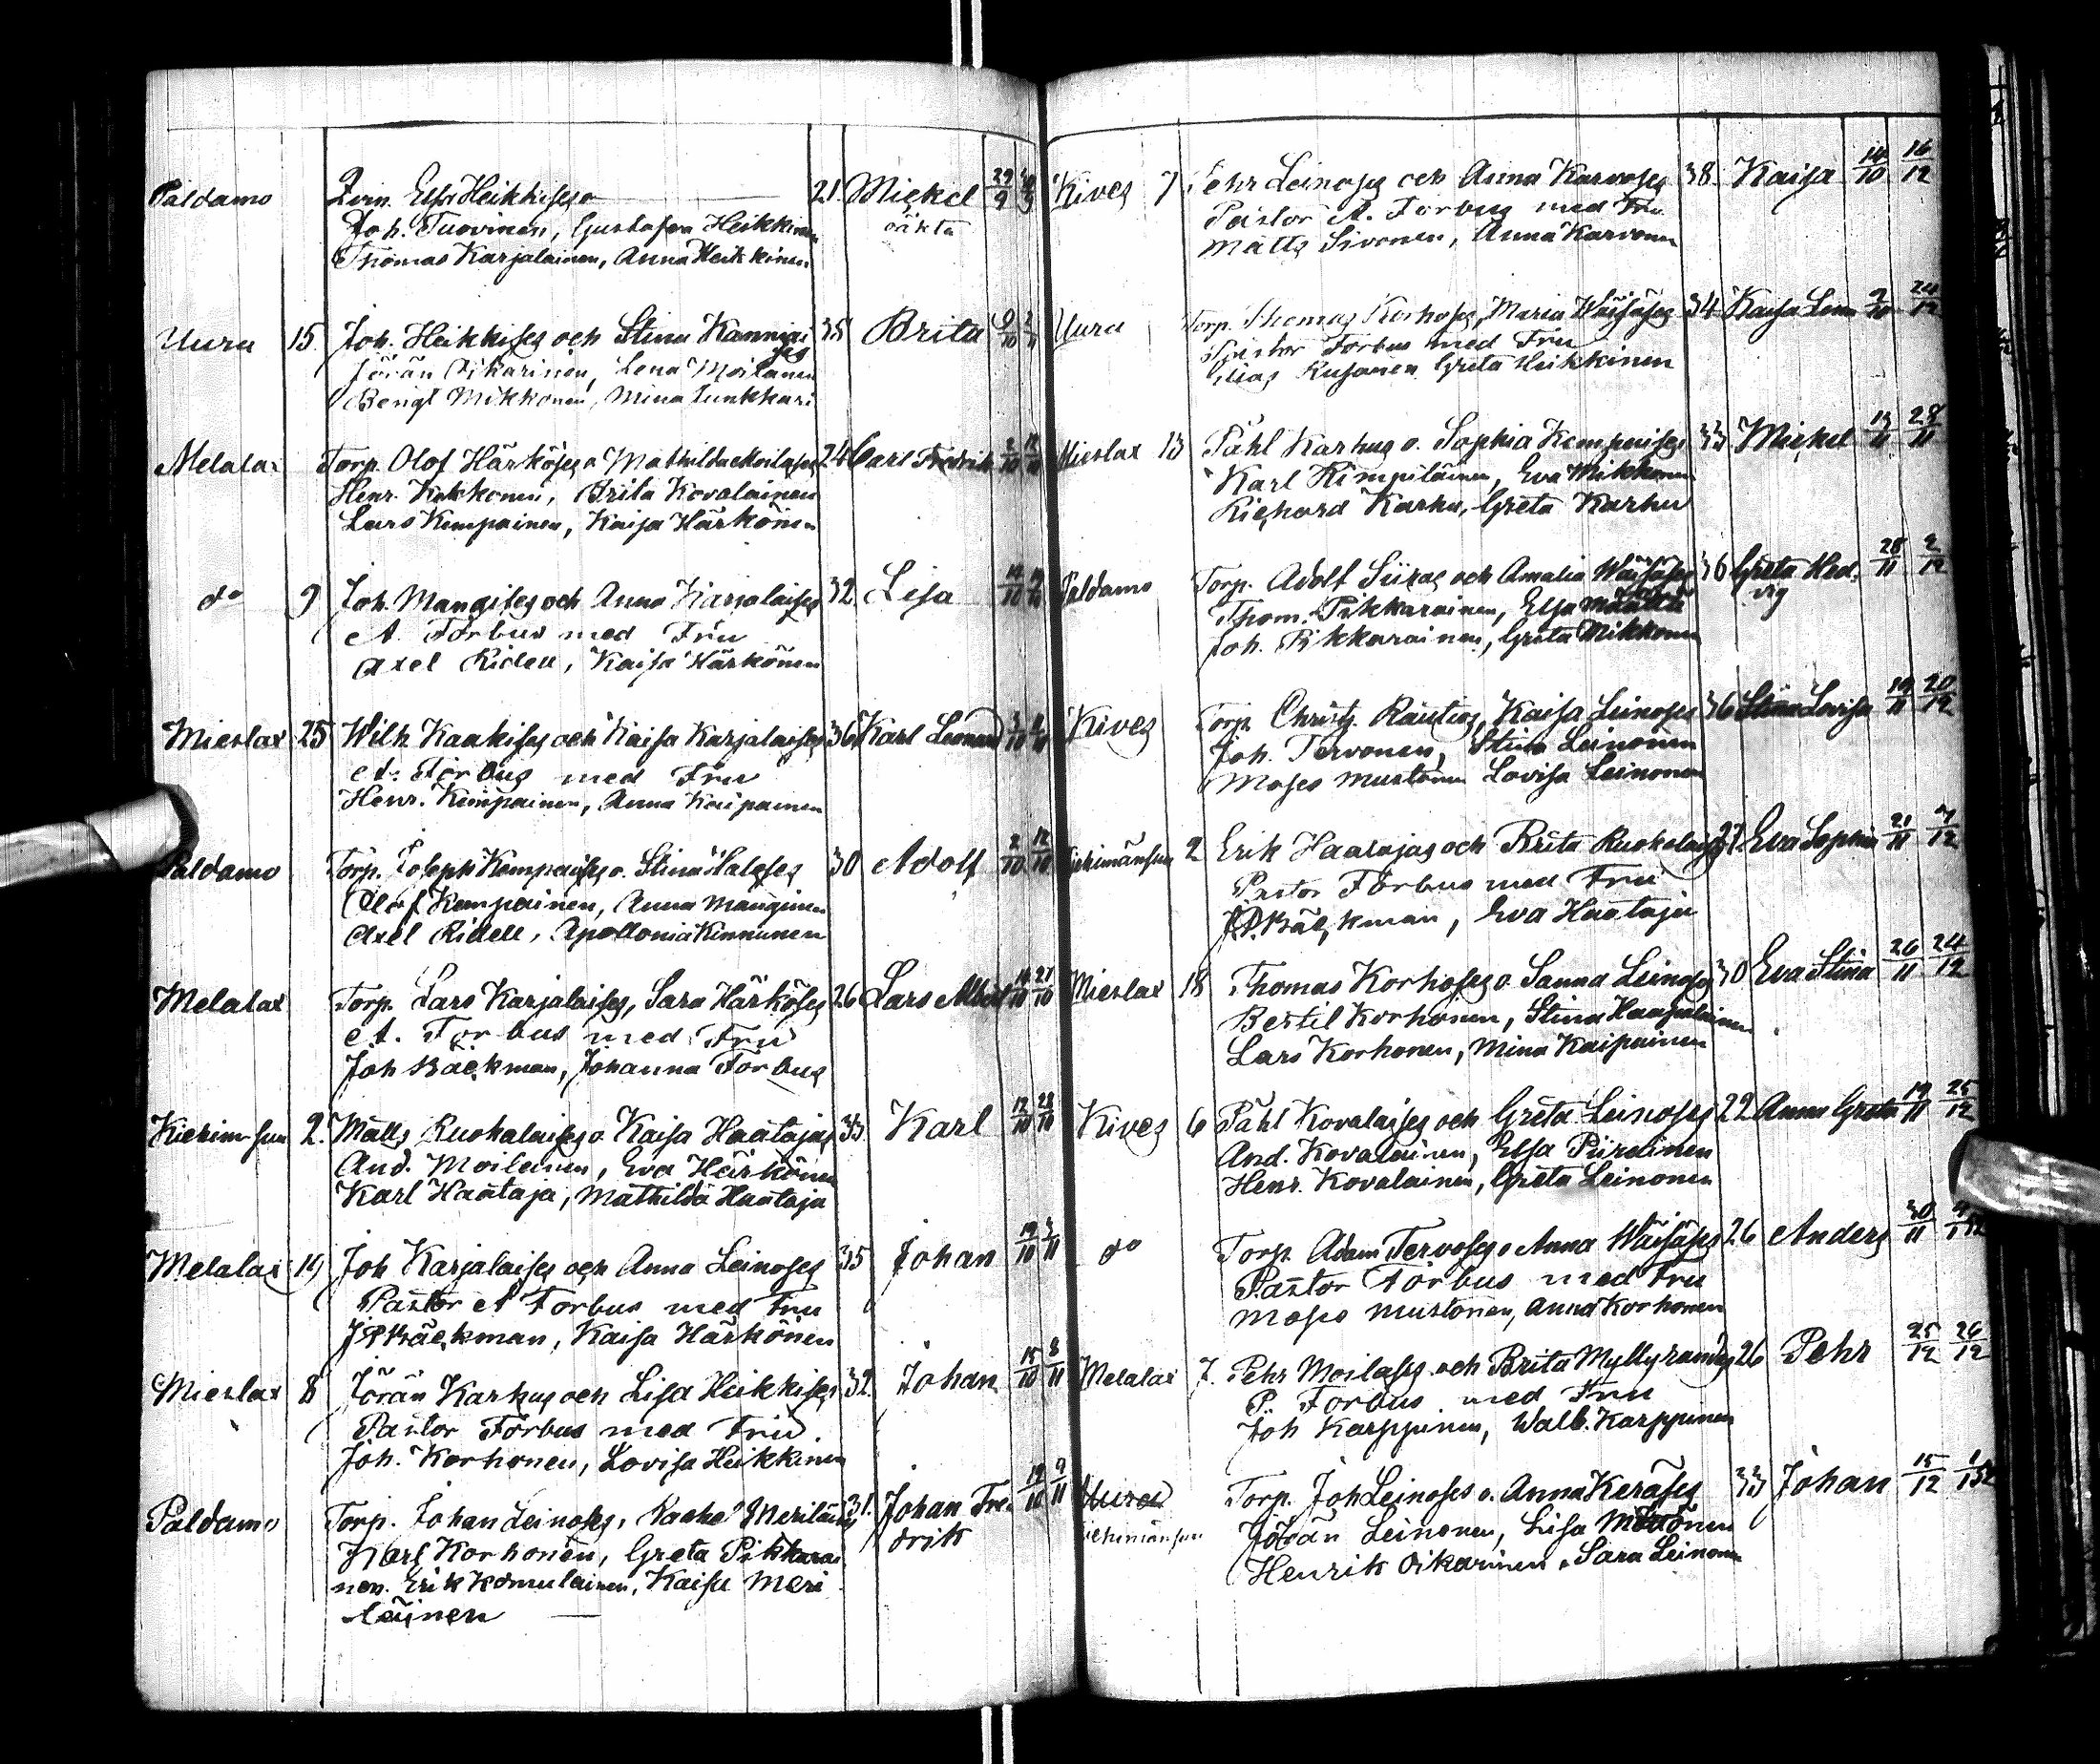 Paldamo Qvin. Elsa Heikkises 21. Mickel 29/9 30/9
Joh. Tuovinen, Gustafva Heikkinen oäkta
Thomas Karjalainen, Anna Heikkinen
Uura 15 Joh. Heikkises och Stina Kanniai 35 Brita
ses
Jöran Oikarinen, Lena Moilanen
Bengt Mikkonen, Mina Junkkari
Melalax Torp. Olof Härköses o Mathilda Moilases 24 Carl Fredrik 2/10 12/10
Henr. Kokkonen, Brita Kovalainen
Lars Kempainen, Kaisa Härkönen
do 9 Joh. Mangises och Anna Karjalaises 32. Lisa
A. Forbus med Fru
Axel Ridell, Kaisa Härkönen
Mieslax 25 Wilh Kaakises och Kaisa Karjalaises 36 Karl Leonard
A. Forbus med Fru
Henr. Kempainen, Anna Kaipainen
Paldamo Torp. Joseph Kempaises o. Stina 30 Adolf 2/10 12/10
Olof Kempainen, Anna Manginen
Axel Ridell, Apollonia Kinnunen
Melalax Torp. Lars Karjalaises, Sara Härköses 26 Lars Albert 16/10 27/10
A. Forbus med Fru
Joh Bäckman, Johanna Forbus
Kiehimsuu 2. Matts Ruokalaises o Kaisa Haatajas 33 Karl 12/10 28/10
And. Moilanen, Eva Härkönen
Karl Haataja, Mathilda Haataja
Melalax 19 Joh Karjalaises och Anna Leinoses 35 Johan 19/10 3/11
Pastor A Forbus med Fru
J P Bäckman, Kaisa Härkönen
Mieslax 8 Jöran Karhus och Lisa Heikkises 32. Johan 15/10 8/11
Pastor Forbus med Fru.
Joh. Korhonen, Lovisa Heikkinen
Paldamo Torp. Johan Leinoses, Kaake Meriläis 31. Johan Fre 19/10 9/11
Karl Korhonen, Greta Pikkarai drik
nen. Erik Komulainen, Kaisa Meri
läinen
Kives 7 Pehr Leinoses och Anna Karvoses 38. Kaisa 14/10 16/12
Pastor A. Forbus med Fru
Matts Sivonen, Anna Karvonen
Uura Torp. Thomas Korhoses, Maria Wäisäses 34 Kaisa Lena 9/10 24/12
Pastor Forbus med Fru
Elias Greta Heikkinen
Mieslax 13 Påhl Karhus o. Sophia Kempaises 33 Mickel 13/11 28/11
Karl Kimpiläinen, Eva Mikkonen
Richard Karhu, Greta Karhu
Paldamo Torp. Adolf Siiras och Amalia Wäisäses 36 Greta Hed- 28/11 2/12
Thom. Pikkarainen, Elsa Määttä vig
Joh. Pikkarainen, Greta Mikkonen
Kives Torp. Christ. Rautios, Kaisa Leinoses 36 Stina Lovisa 19/11 20/12
Joh. Tervonen, Stina Leinonen
Moses Mustonen Lovisa Leinonen
Kiehimänsuu 2 Erik Haatajas och Brita Ruokolais 27. Eva Sophia 21/11 7/12
Pastor Forbus med Fru
J.P. Bäckman, Eva Haataja
Mieslax 18 Thomas Korhoses o. Sanna Leinoses 30 Eva Stina 26/11 24/12
Bertil Korhonen, Stina Haapalainen
Lars Korhonen, Mina Kaipainen
Kives 6 Påhl Kovalaises och Greta Leinoses 22 Anna Greta 19/11 25/12
And. Kovalainen, Elsa Piirainen
Henr. Kovalainen, Greta Leinonen
do Torp. Adam Tervoses o Anna Wäisäses 26 Anders 30/11
Pastor Forbus med Fru
Moses Mustonen, Anna Korhonen
Melalax 7. Pehr Moilases och Brita Myllyrannas 26 Pehr 25/12 26/12
P. Forbus med Fru
Joh Karppinen, Walb. Karppinen
Uura Torp. Joh Leinoses o. Anna Keräses 33 Johan 15/12
Kiehimänsuu Jöran Leinonen, Lisa
Henrik Oikarinen, Sara Leinonen